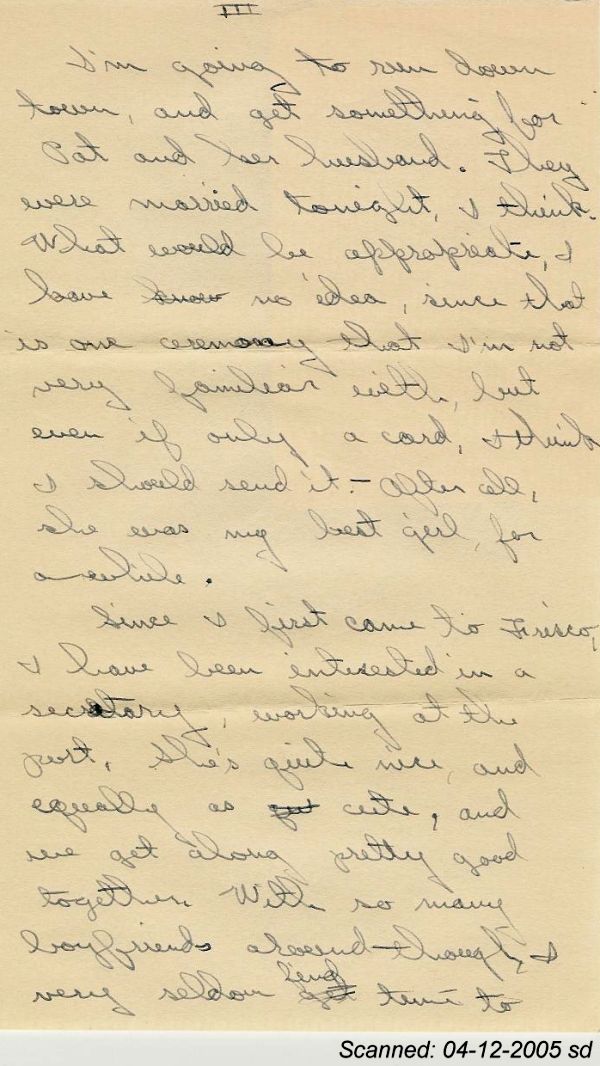 III
I'm going to run down
town, and get something for
Pat and her husband. They
were married tonight, I think.
What would be appropriate, I
have know no idea, since that
is one ceremony that I'm not
very familiar with, but
even if only a card, I think
I should send it. - After all,
she was my best girl, for
awhile.
Since I first came to Frisco,
I have been interested in a
secretary, working at the
port, She's quite nice, and
equally as cute, and
we get along pretty good
together. With so many
boyfriends around though, I
very seldom find get time to
Scanned: 04-12-2005 sd